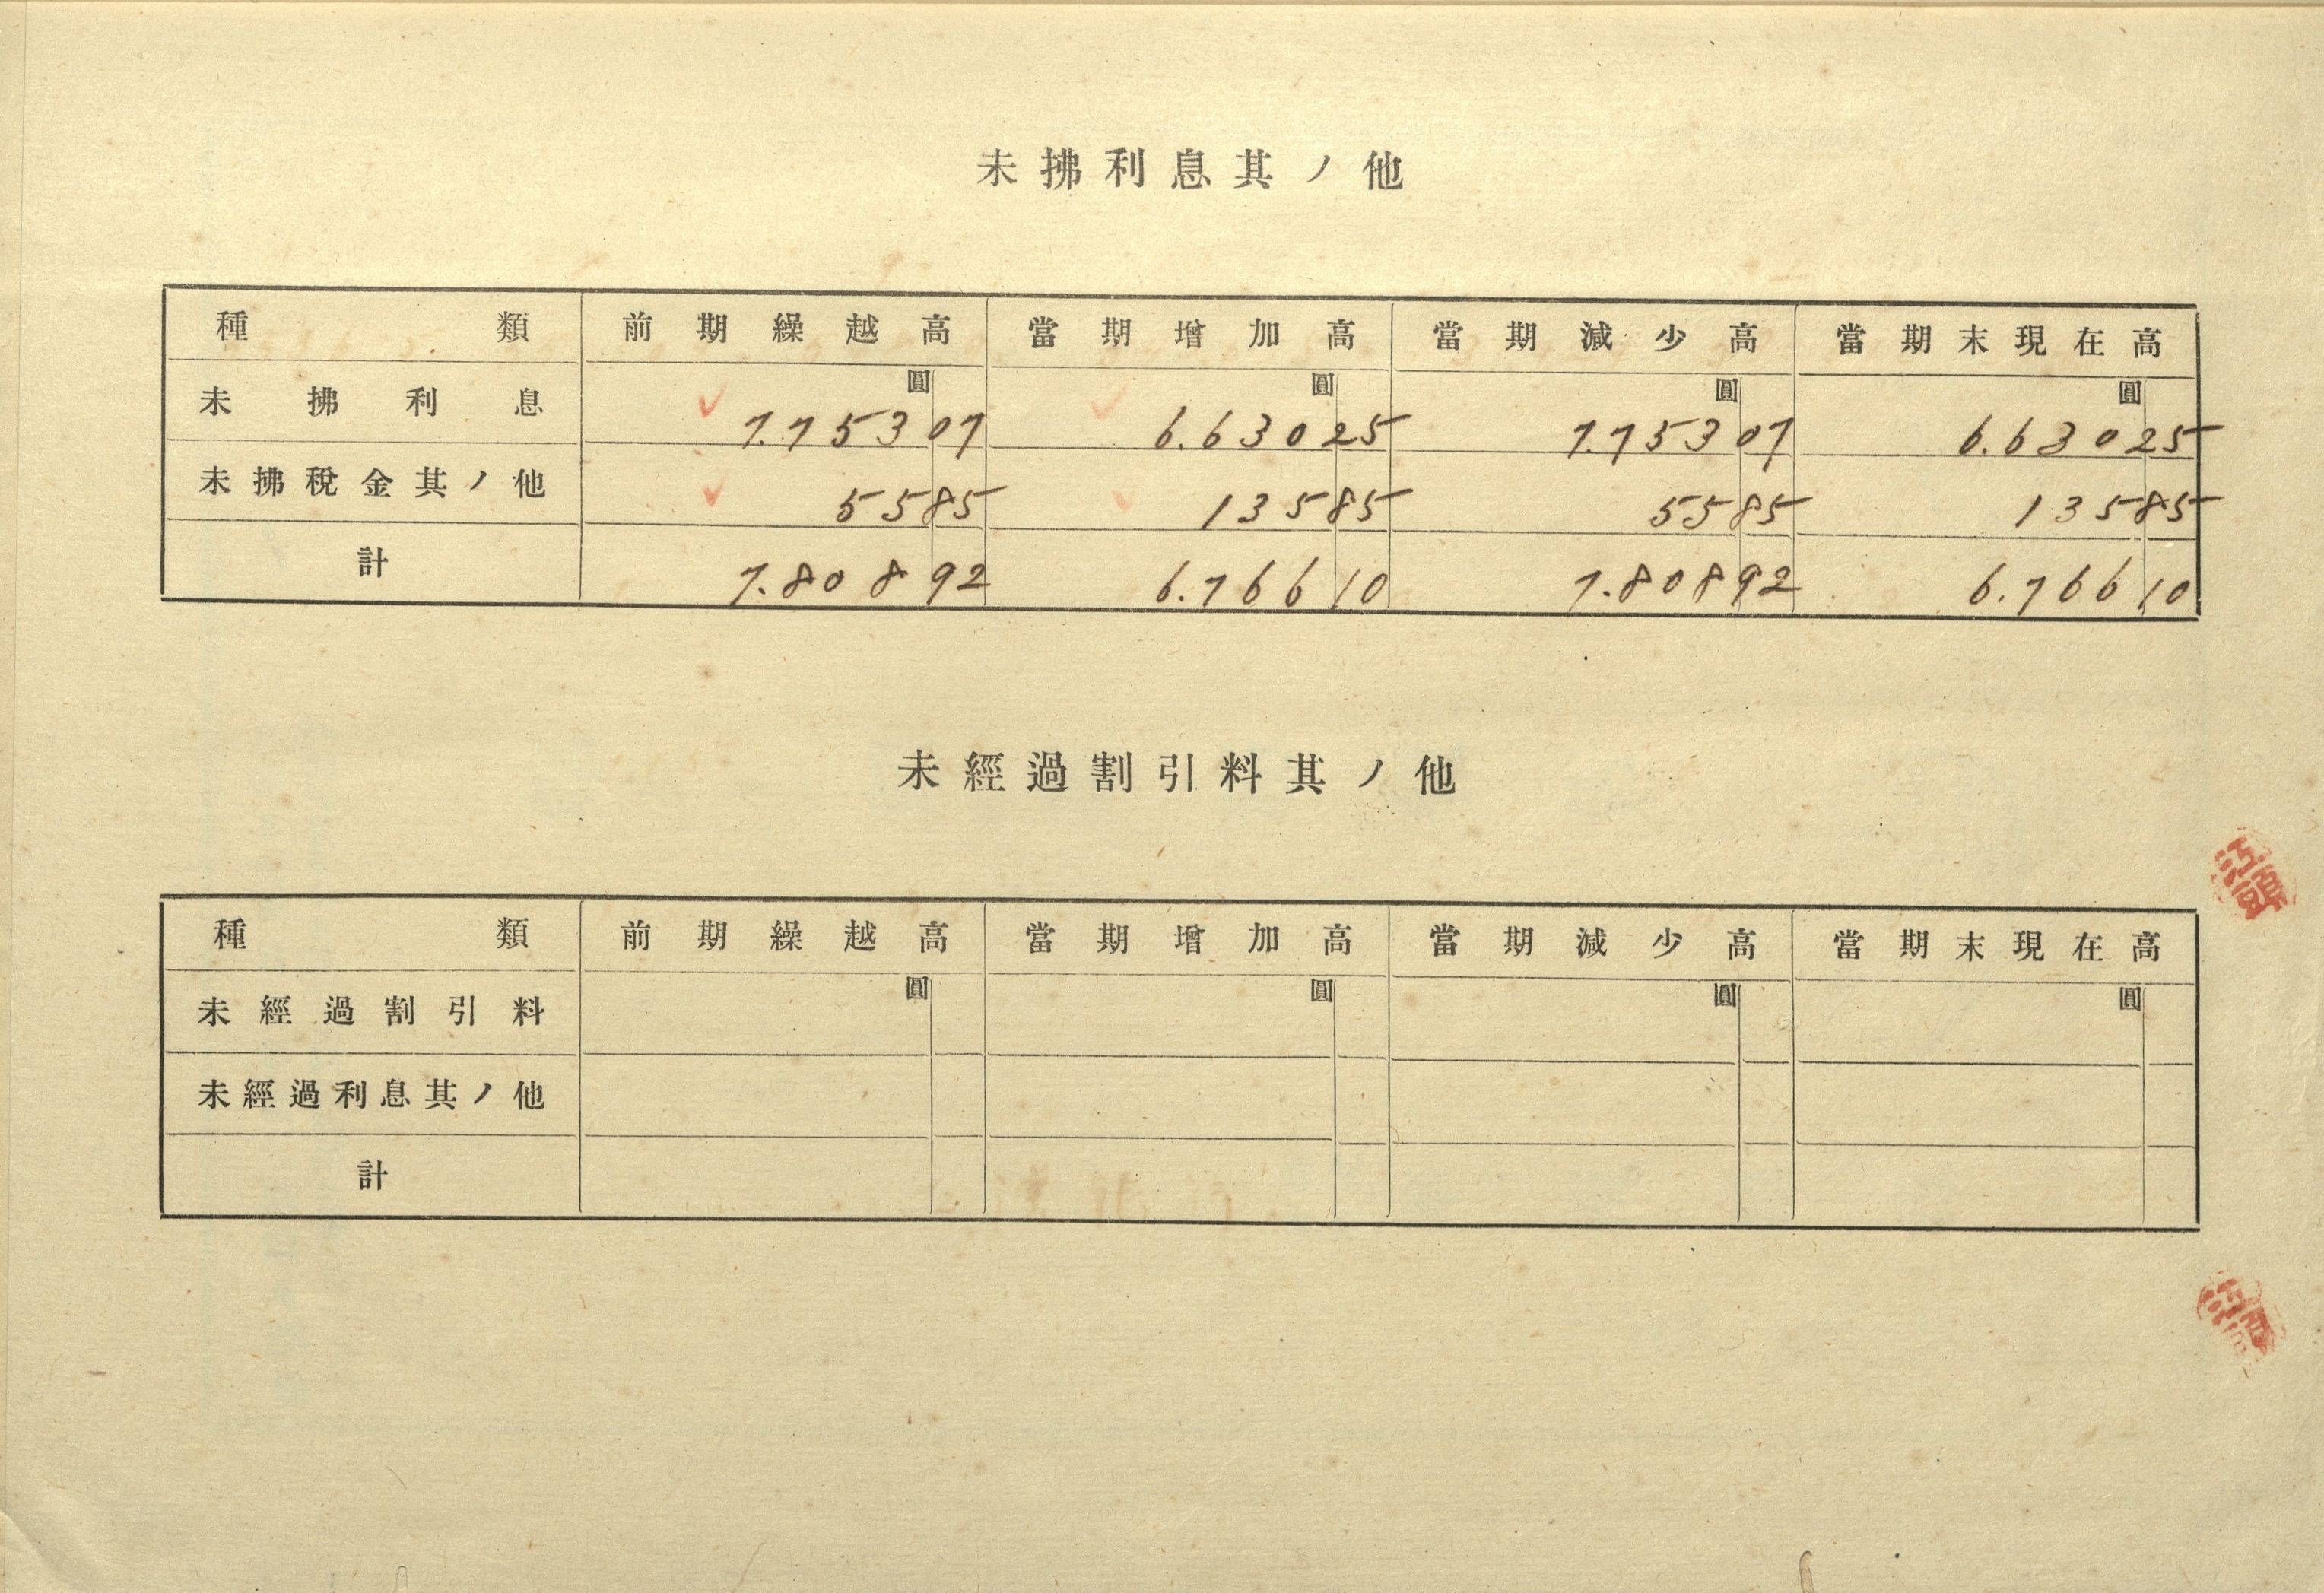 未拂利息其ノ他
種類 前期繰越高 當期增加高 當期減少高 當期末現在高
圓 圓 圓 圓
未拂利息 7.753 07 6.630 25 7.753 07 6.630 25
未拂稅金其ノ他 55 85 135 85 55 85 135 85
計 7.808 92 6.766 10 7.808 92 6.766 10
未經過割引料其ノ他
江頭
種類 前期繰越高 當期增加高 當期減少高 當期末現在高
圓 圓 圓 圓
未經過割引料
未經過利息其ノ他
計
江頭